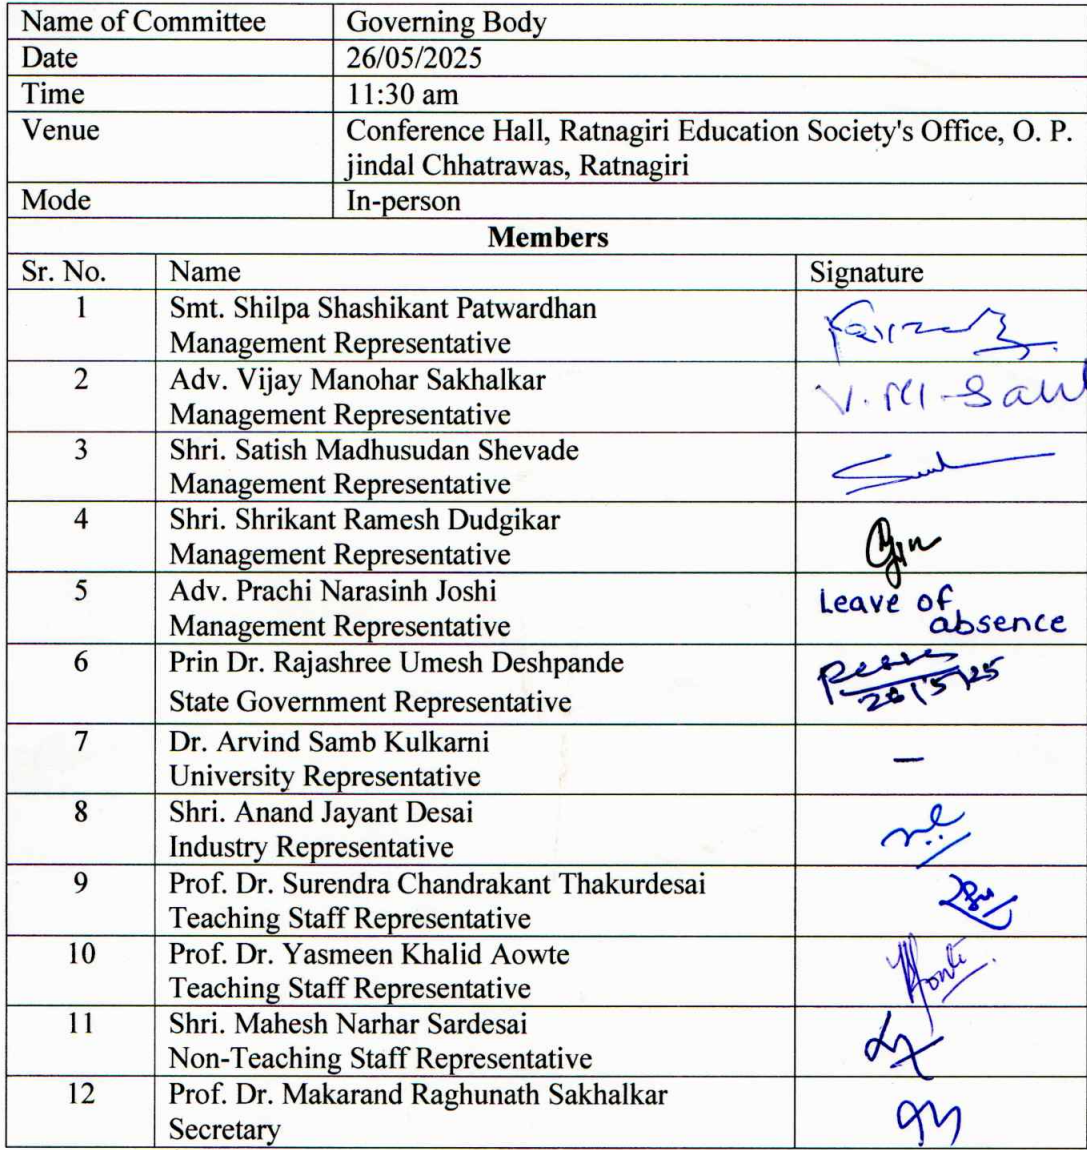 Name of Committee Governing Body
Date 26/05/2025
Time 11:30 am
Venue Conference Hall, Ratnagiri Education Society's Office, O. P.
jindal Chhatrawas, Ratnagiri
Mode In-person
Members
Sr. No. Name Signature
1 Smt. Shilpa Shashikant Patwardhan
Management Representative
2 Adv. Vijay Manohar Sakhalkar
Management Representative
3 Shri. Satish Madhusudan Shevade
Management Representative
4 Shri. Shrikant Ramesh Dudgikar
Management Representative
5 Adv. Prachi Narasinh Joshi Leave of
Management Representative absence
6 Prin Dr. Rajashree Umesh Deshpande
State Government Representative 26/5/25
7 Dr. Arvind Samb Kulkarni –
University Representative
8 Shri. Anand Jayant Desai
Industry Representative
9 Prof. Dr. Surendra Chandrakant Thakurdesai
Teaching Staff Representative
10 Prof. Dr. Yasmeen Khalid Aowte
Teaching Staff Representative
11 Shri. Mahesh Narhar Sardesai
Non-Teaching Staff Representative
12 Prof. Dr. Makarand Raghunath Sakhalkar
Secretary